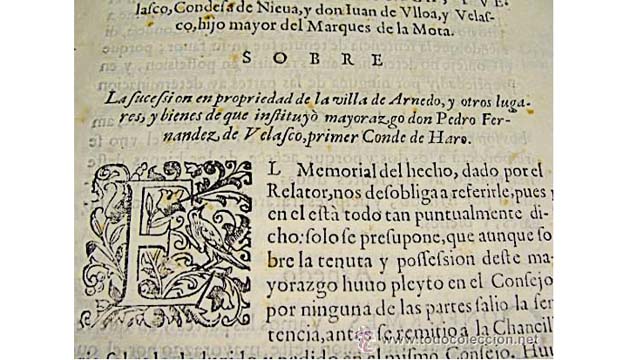 lasco, Condesa de Nieua, y don Iuan de Vlloa, y Velas-
co, hijo mayor del Marques de la Mota.
SOBRE
La sucession en propriedad de la villa de Arnedo, y otros luga-
res, y bienes de que instituyò mayorazgo don Pedro Fer-
nandez de Velasco, primer Conde de Haro.
EL Memorial del hecho, dado por el
Relator, nos desobliga a referirle, pues
en el està todo tan puntualmente di-
cho: solo se presupone, que aunque so
bre la tenuta y possession deste ma-
yorazgo huuo pleyto en el Consejo
por ninguna de las partes salio la sen
tencia, antes se remitio a la Chancill
y pedido en el mismo Consejo
www.todocoleccion.net